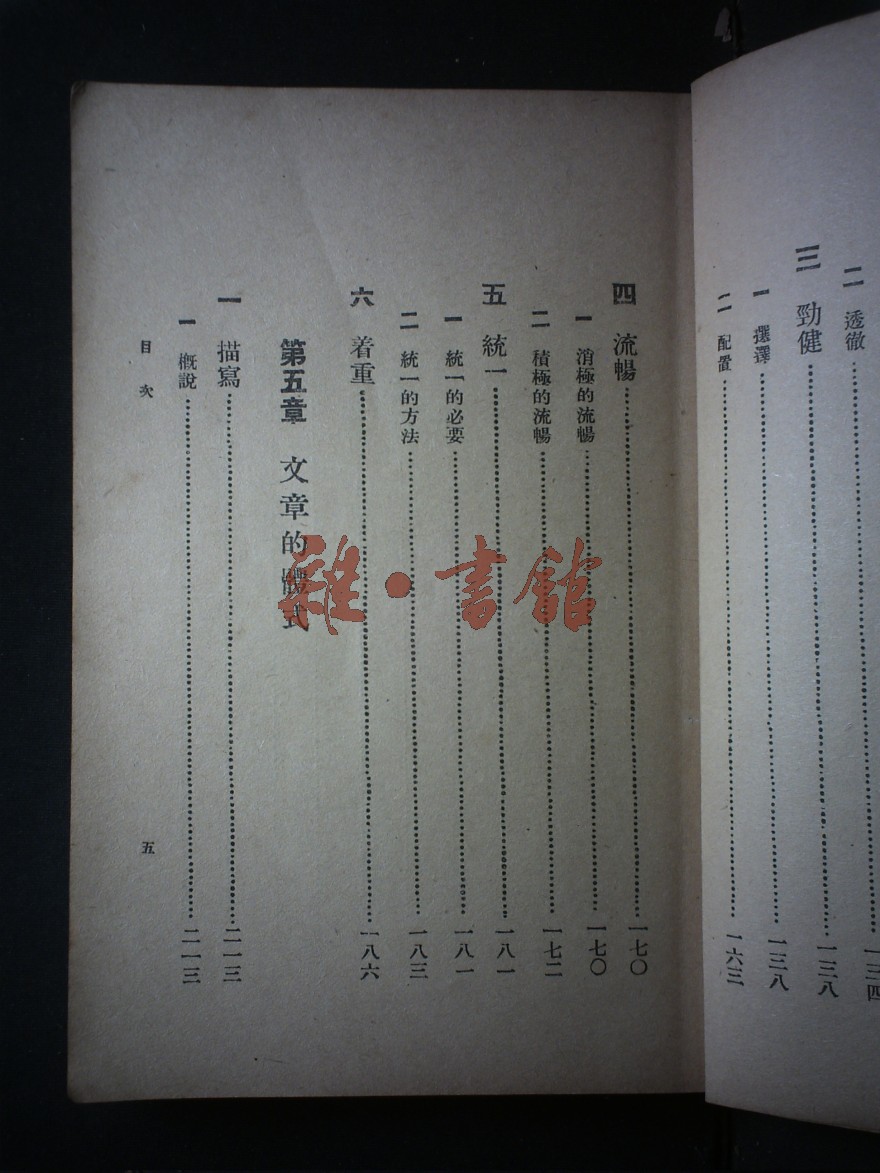 二 透徹……一三四
三 勁健……一三八
一 選擇……一三八
二 配置……一六三
四 流暢……一七〇
一 消極的流暢……一七〇
二 積極的流暢……一七二
五 統一……一八一
一 統一的必要……一八一
二 統一的方法……一八三
六 着重……一八六
第五章 文章的體式
一 描寫……二一三
一 概說……二一三
目次
五
雜·書館